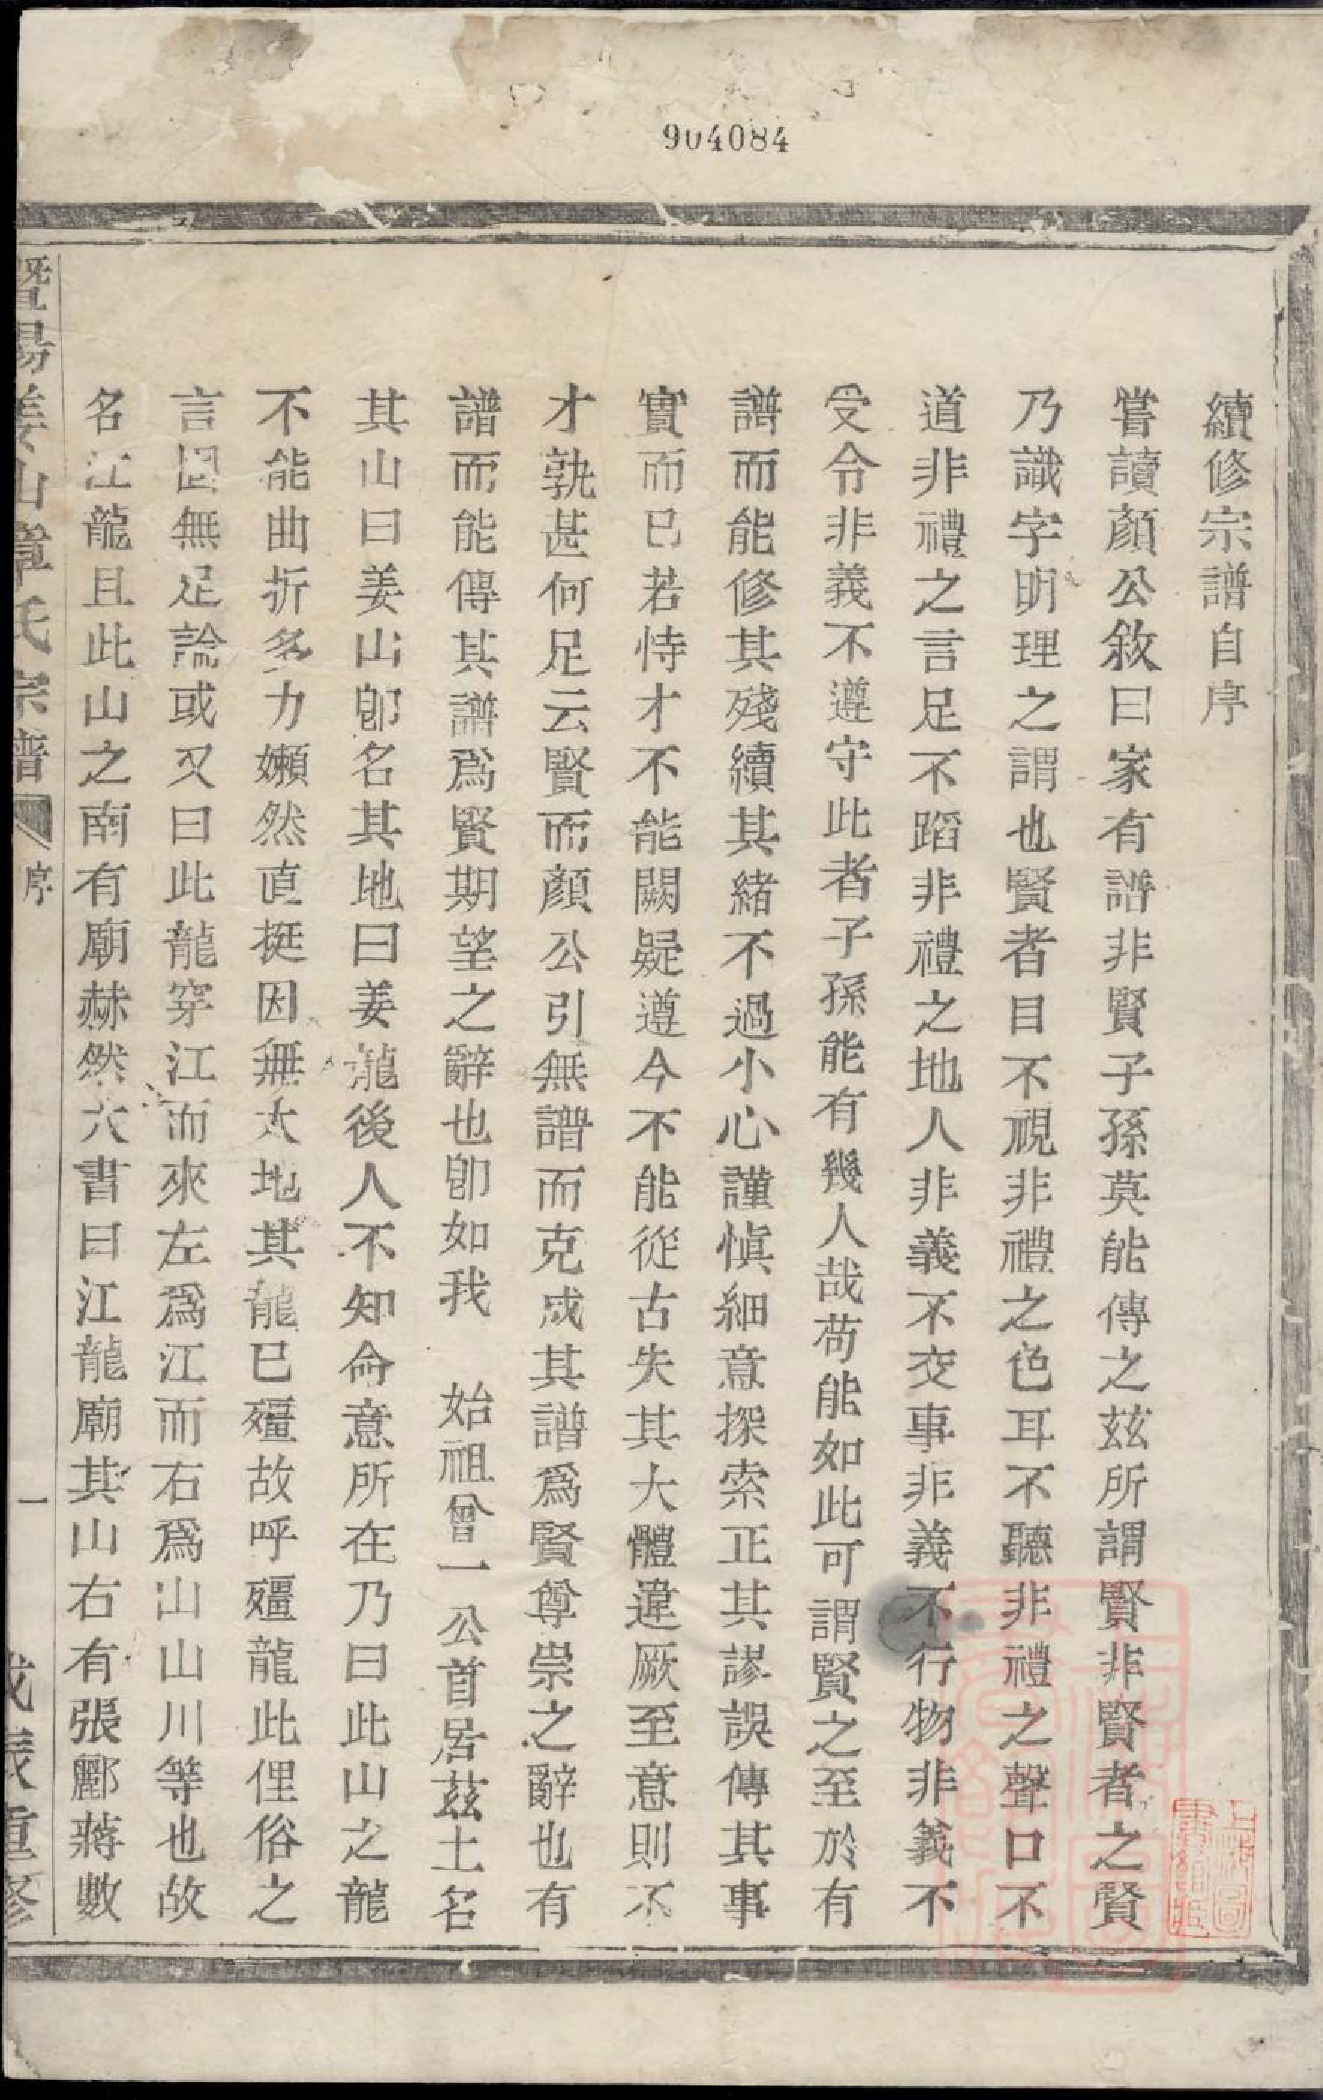 904084
續修宗譜自序
嘗讀顏公敘曰家有譜非賢子孫莫能傳之茲所謂賢非賢者之賢
乃識字明理之謂也賢者目不視非禮之色耳不聽非禮之聲口不
道非禮之言足不蹈非禮之地人非義不交事非義不行物非義不
受令非義不遵守此者子孫能有幾人哉苟能如此可謂賢之至於有
譜而能修其殘續其緒不過小心謹慎細意探索正其謬誤傳其事
實而已若恃才不能闕疑遵今不能從古失其大體違厥至意則不
才孰甚何足云賢而顏公引無譜而克成其譜爲賢尊崇之辭也有
譜而能傳其譜爲賢期望之辭也卽如我 始祖曾一公首居茲土名
其山曰姜山卽名其地曰姜龍後人不知命意所在乃曰此山之龍
不能曲折多力嬾然直挺因無大地其龍已殭故呼殭龍此俚俗之
言固無足論或又曰此龍穿江而來左爲江而右爲山山川等也故
名江龍且此山之南有廟赫然大書曰江龍廟其山右有張酈蔣數
暨陽姜山章氏宗譜 序 一 戊辰重修
上海圖書館藏